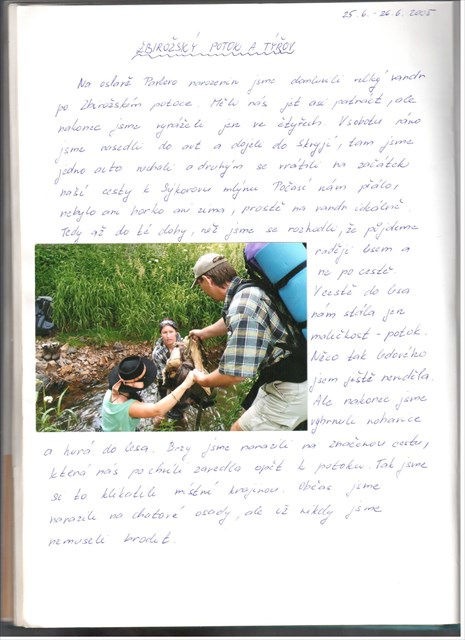 25.6. - 26.6. 2005
ZBIROŽSKÝ POTOK A TÝŘOV
Na oslavě Pavlovo narozenin jsme domluvili velký vandr
po Zbirožském potoce. Mělo nás jet asi patnáct, ale
nakonec jsme vyráželi jen ve čtyřech. V sobotu ráno
jsme nasedli do aut a dojeli do Skryjí, tam jsme
jedno auto nechali a druhým se vrátili na začátek
naší cesty k Sýkorovu mlýnu. Počasí nám přálo,
nebylo ani horko ani zima, prostě na vandr ideálně.
Tedy až do té doby, než jsme se rozhodli, že půjdeme
raději lesem a
ne po cestě.
V cestě do lesa
nám stála jen
maličkost - potok.
Něco tak ledového
jsem ještě neviděla.
Ale nakonec jsme
vyhrnuli nohavice
a hurá do lesa. Brzy jsme narazili na značenou cestu,
která nás po chvíli zavedla opět k potoku. Tak jsme
si to klikatili místní krajinou. Občas jsme
narazili na chatové osady, ale už nikdy jsme
nemuseli brodit.